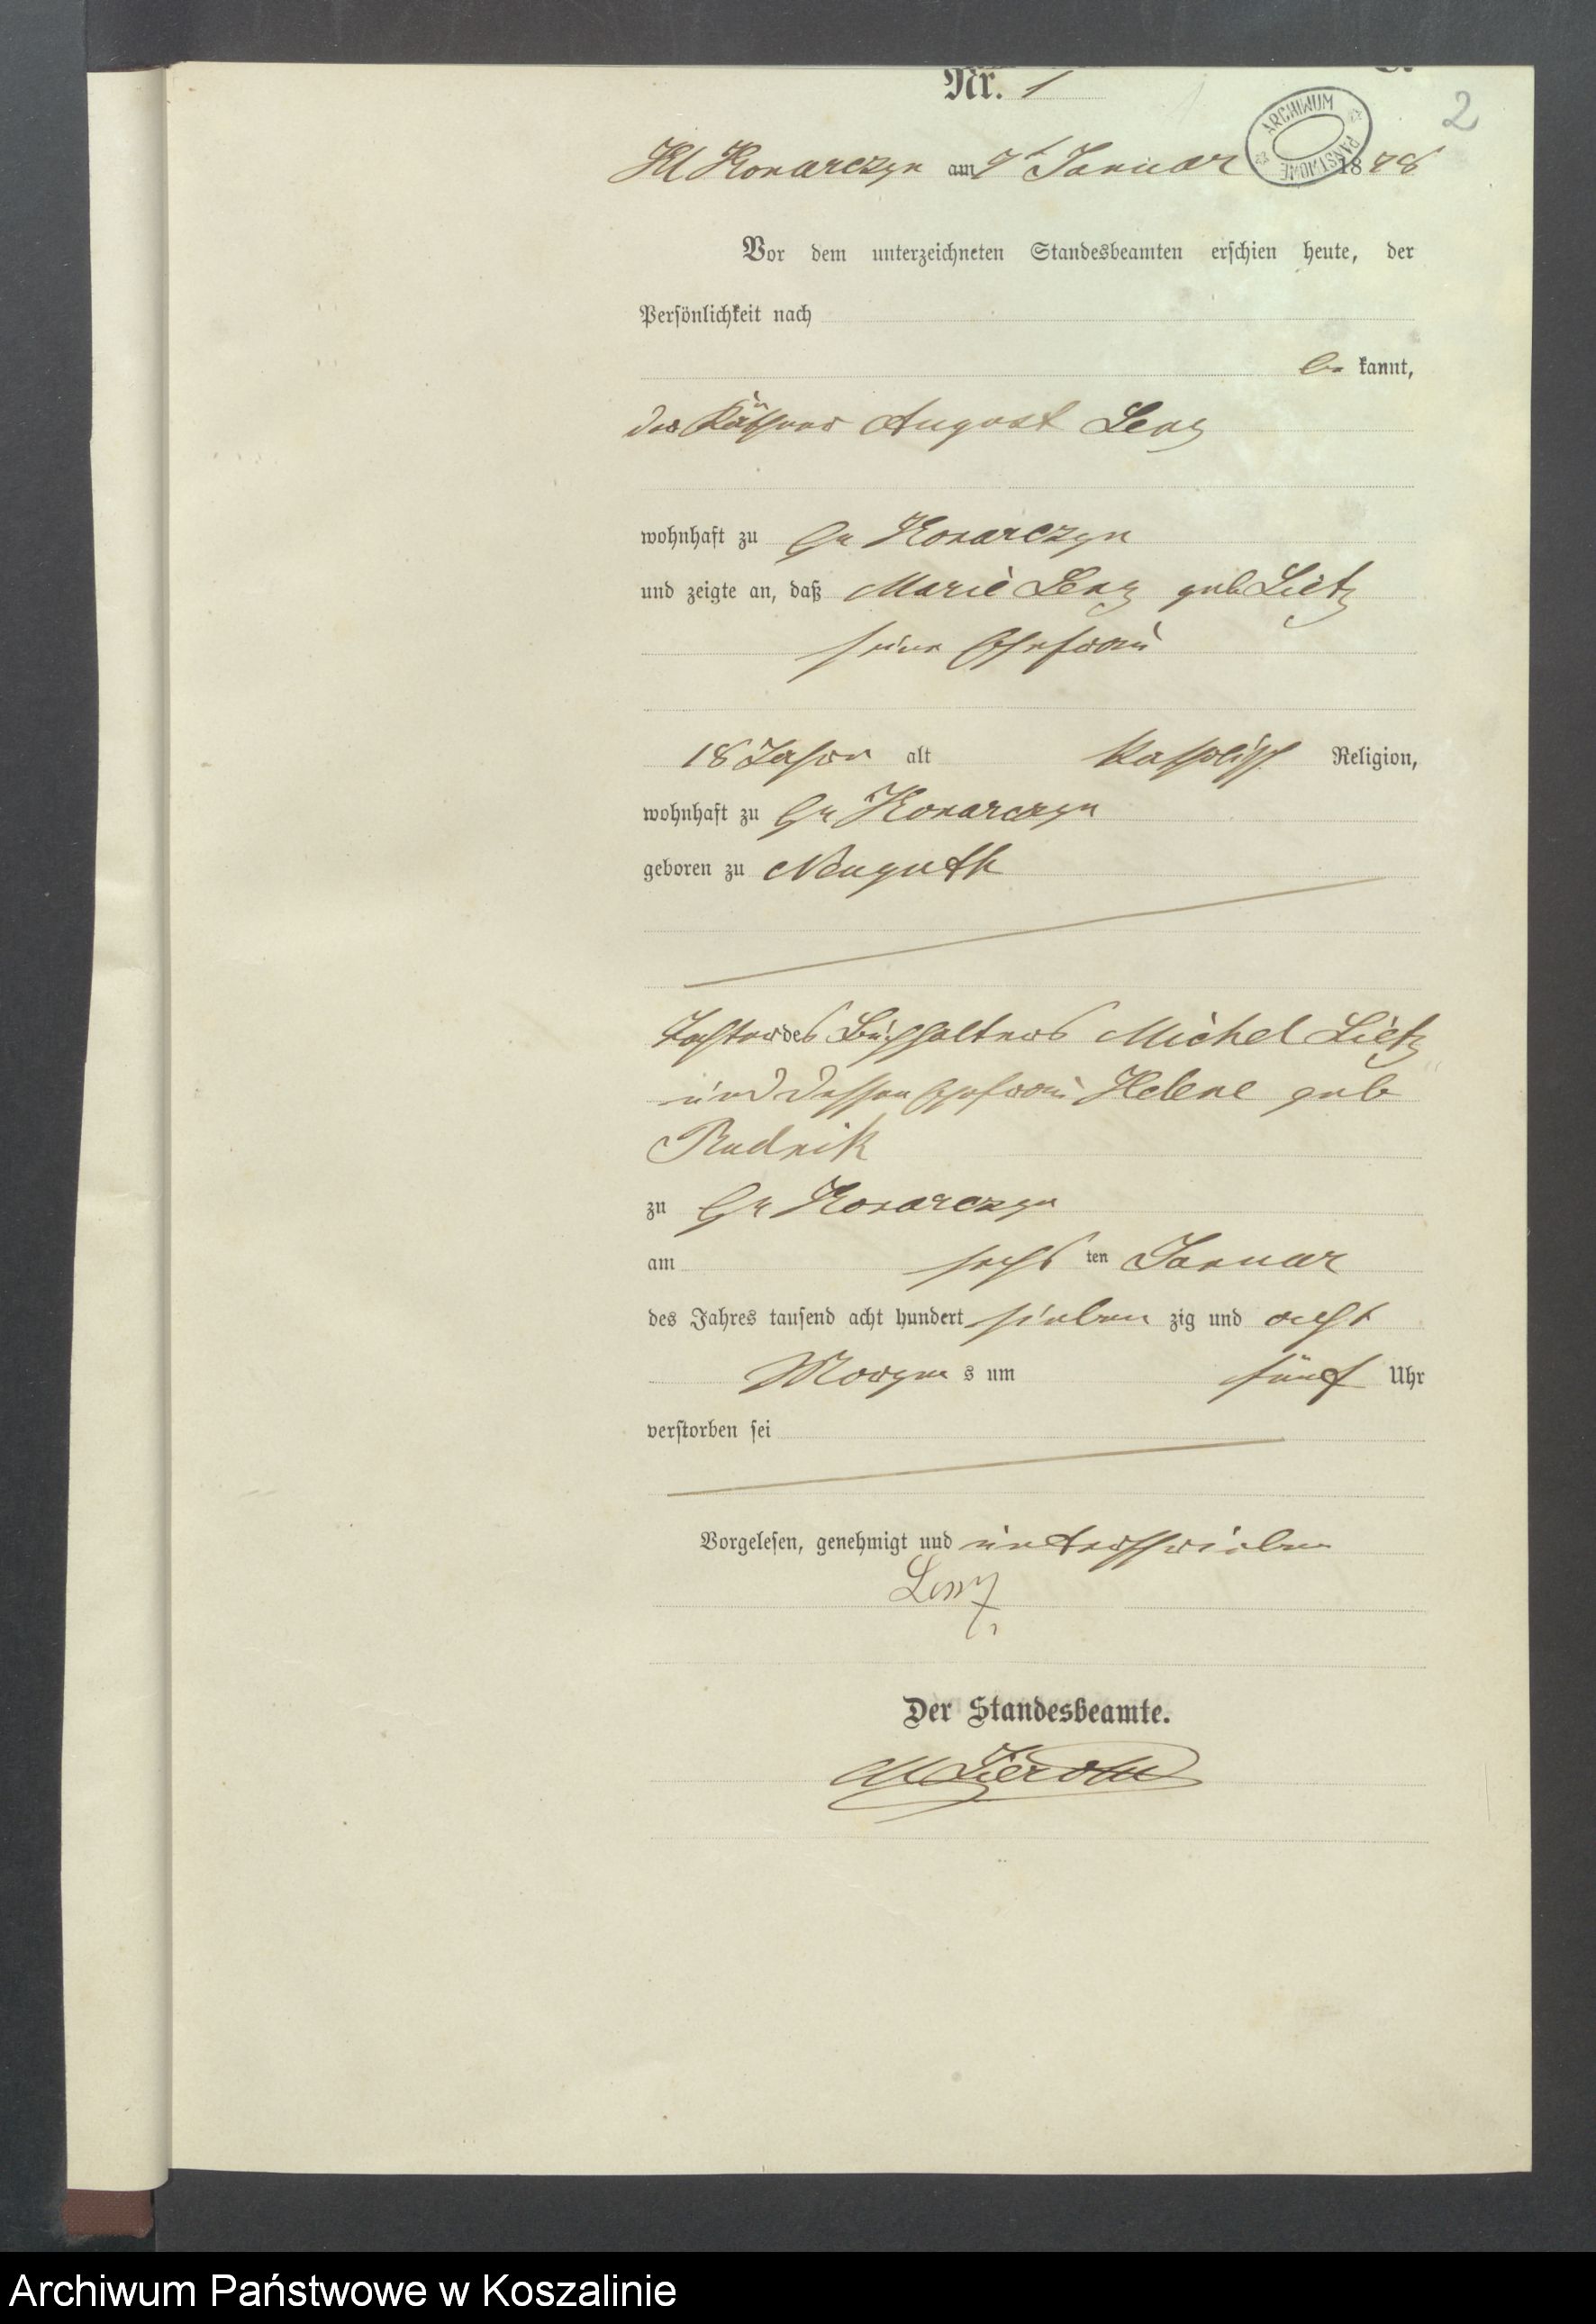 Nr. 1
2
ARCHIWUM PAŃSTWOWE
Kl Konarczyn am 7t Januar 1878
Vor dem unterzeichneten Standesbeamten erschien heute, der
Persönlichkeit nach
be kannt,
der Käthner August Lenz
wohnhaft zu Gr Konarczyn
und zeigte an, daß Marie Lenz geb Lietz
seine Ehefrau
18 Jahre alt katholisch Religion,
wohnhaft zu Gr Konarczyn
geboren zu Neuguth
Tochter des Buchhalters Michel Lietz
und dessen Ehefrau Helene geb
Rudnik
zu Gr Konarczyn
am sechs ten Januar
des Jahres tausend acht hundert sieben zig und acht
Morgen s um fünf Uhr
verstorben sei
Vorgelesen, genehmigt und unterschrieben
Lenz
Der Standesbeamte.
Archiwum Państwowe w Koszalinie